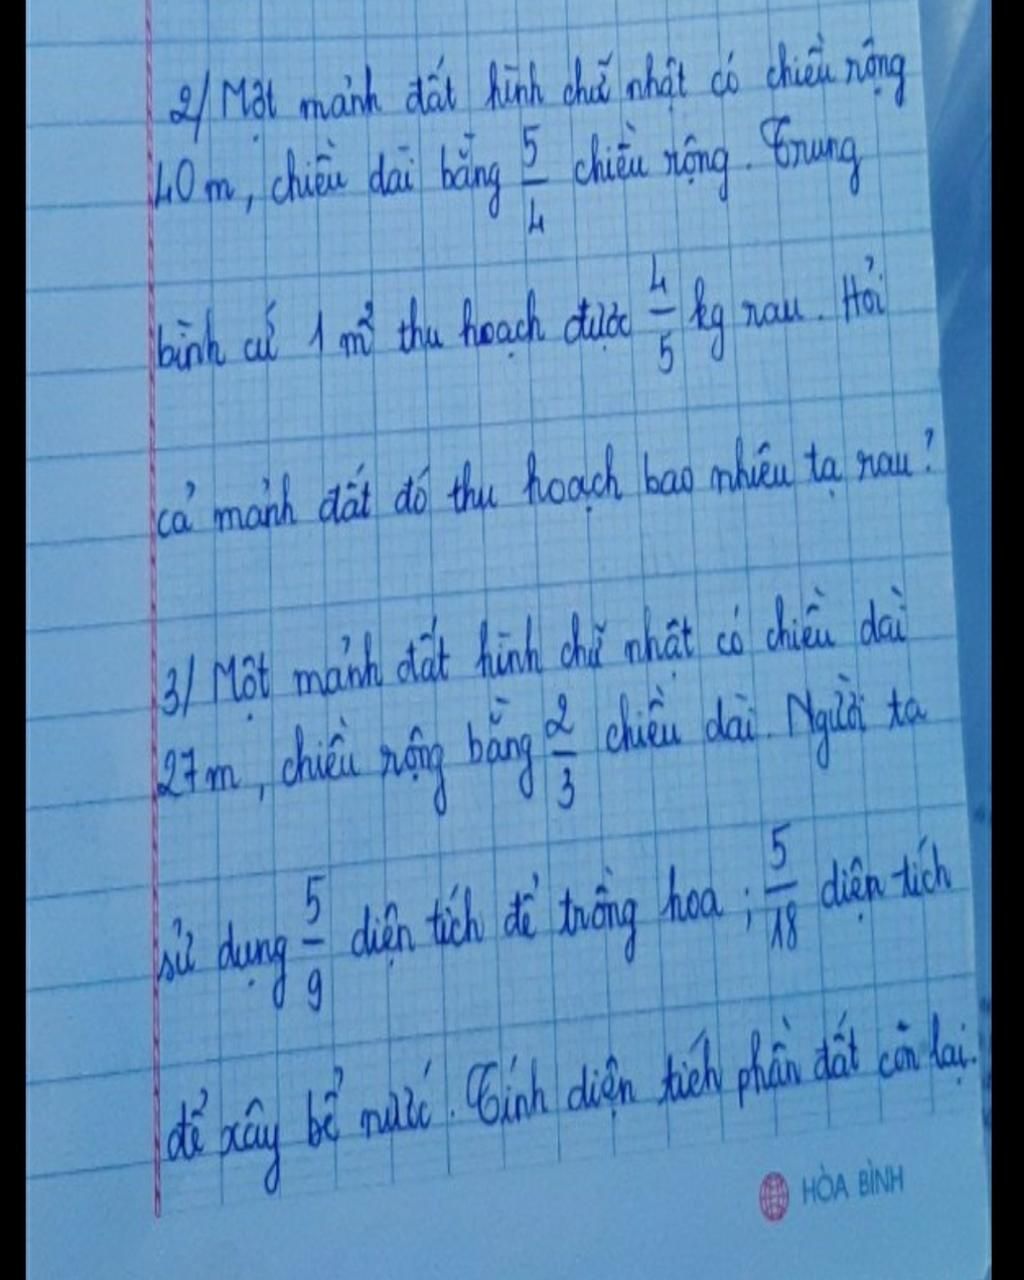 2/ Một mảnh đất hình chữ nhật có chiều rộng
40 m, chiều dài bằng 5/4 chiều rộng. Trung
bình cứ 1 m² thu hoạch được 4/5 kg rau. Hỏi
cả mảnh đất đó thu hoạch bao nhiêu tạ rau?
3/ Một mảnh đất hình chữ nhật có chiều dài
27 m, chiều rộng bằng 2/3 chiều dài. Người ta
sử dụng 5/9 diện tích để trồng hoa ; 5/18 diện tích
để xây bể nước. Tính diện tích phần đất còn lại.
HÒA BÌNH